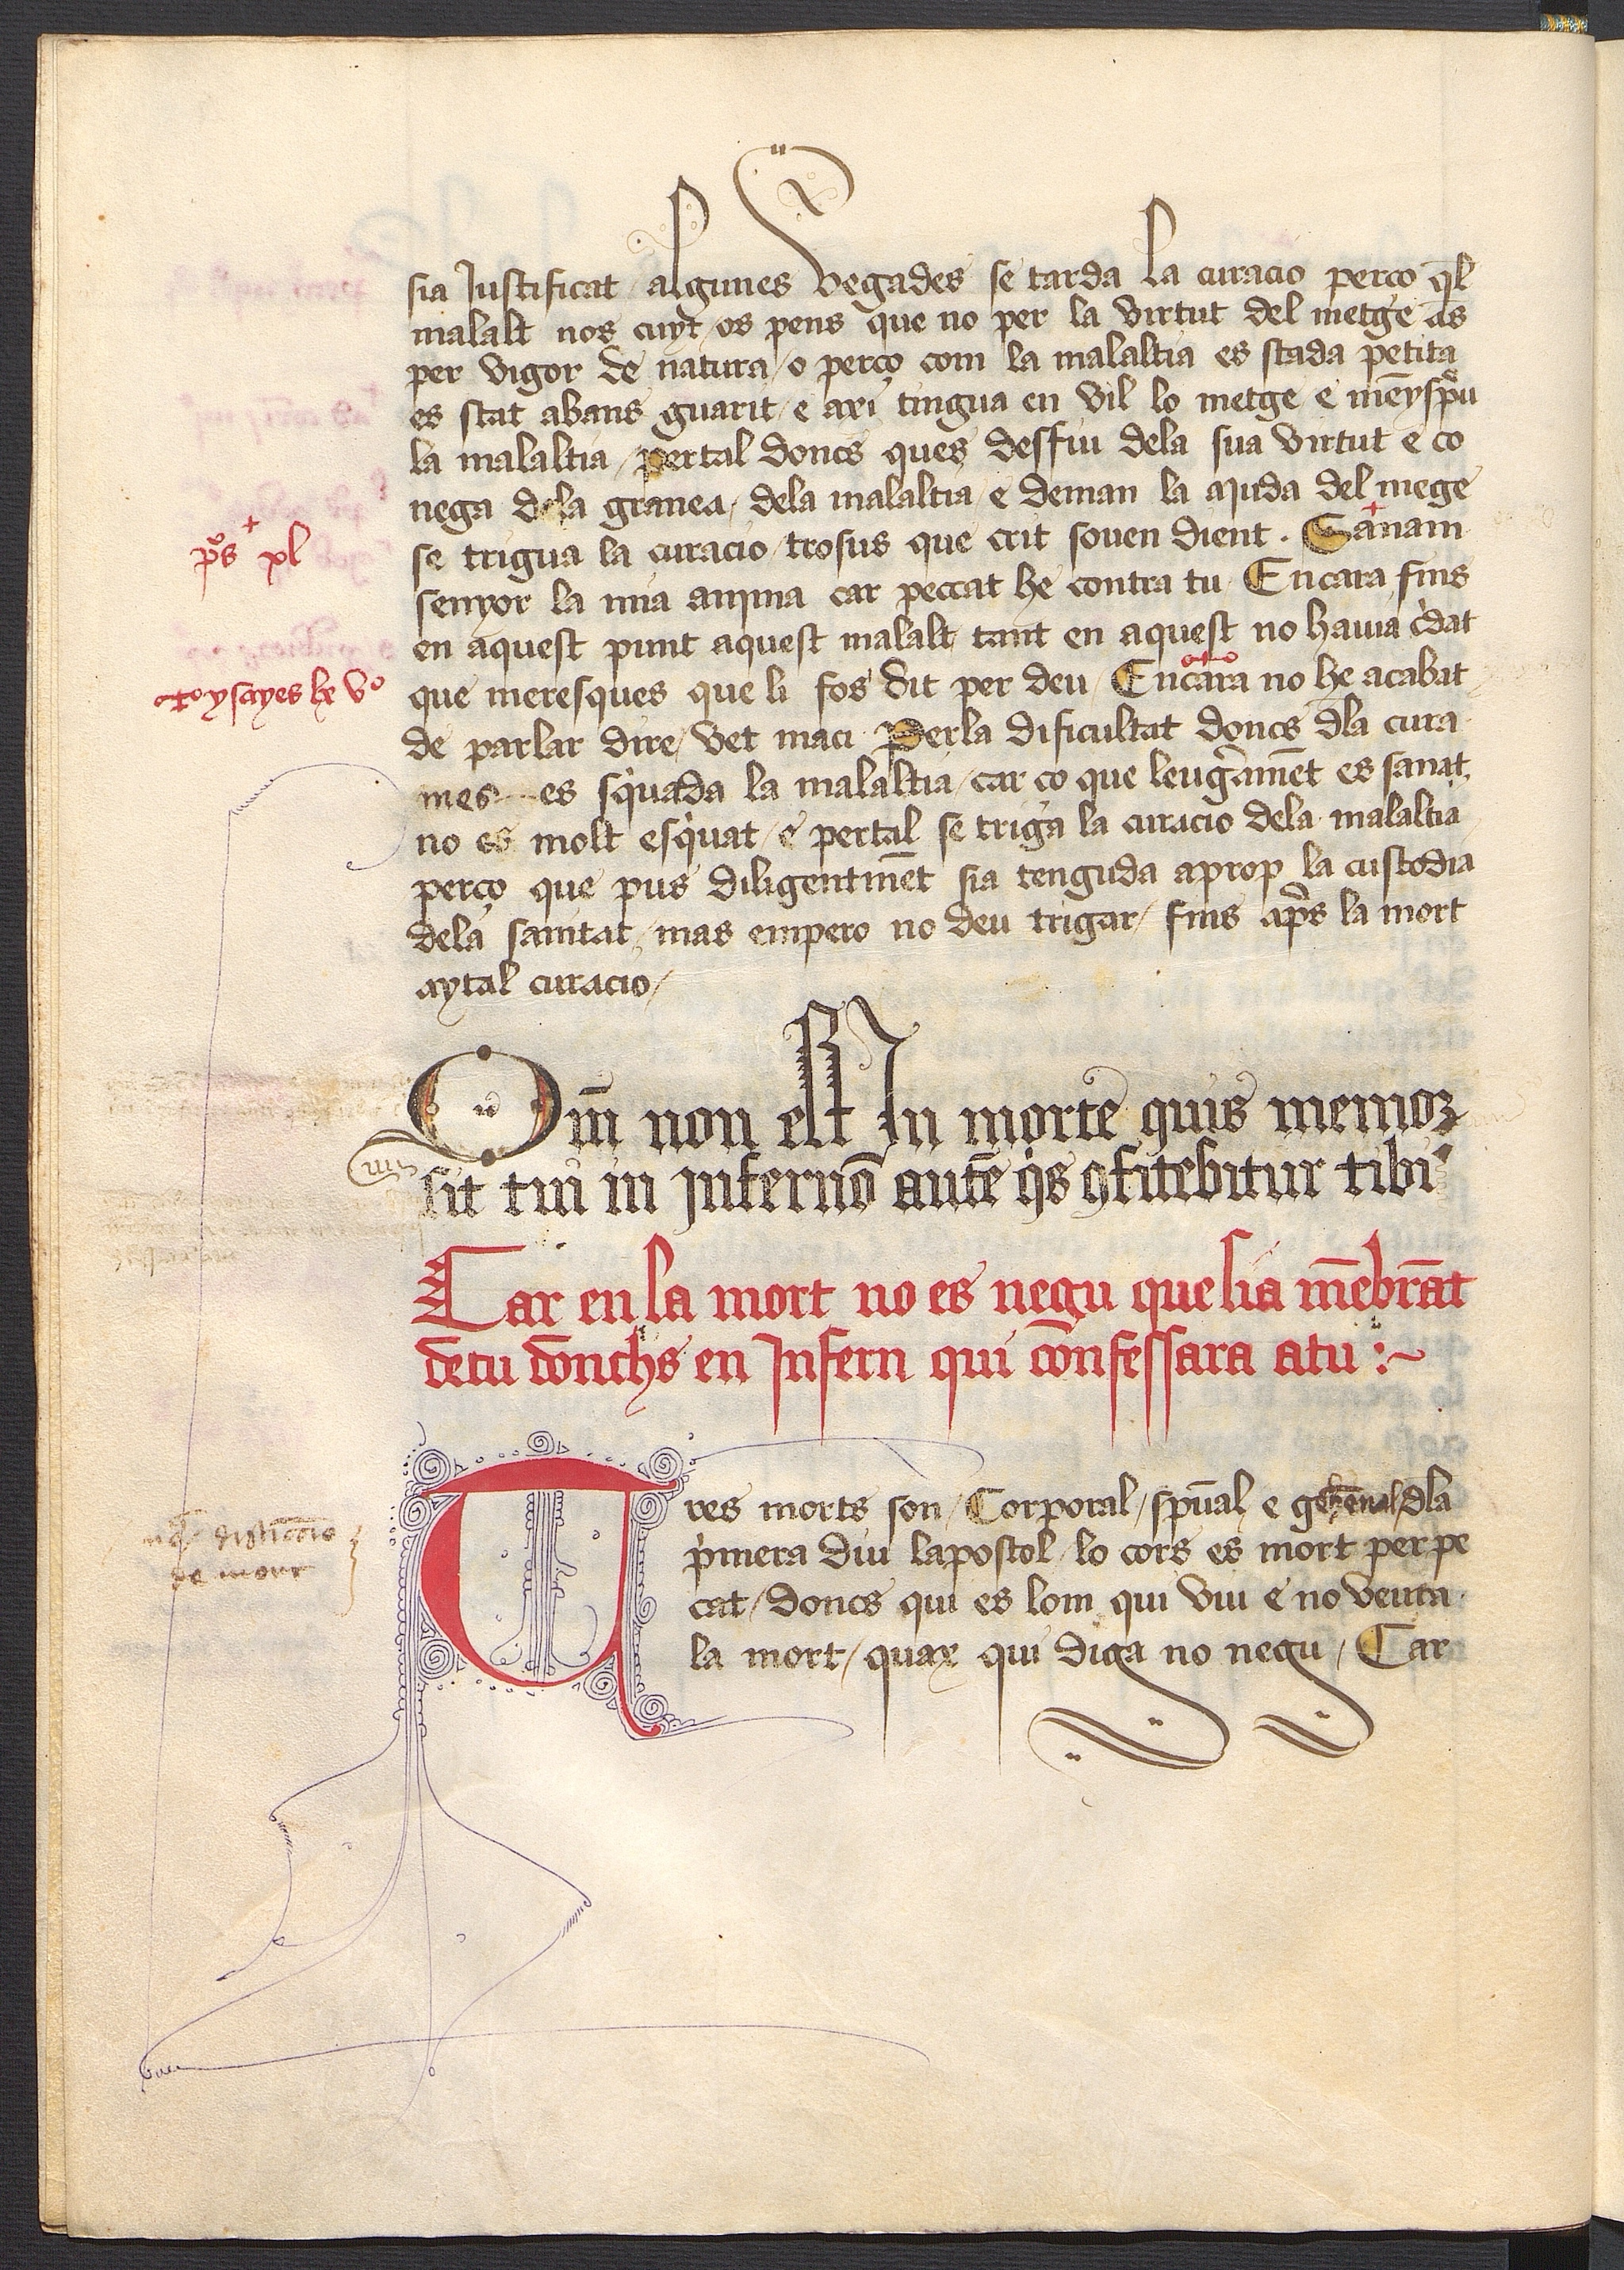 sia Justificat / algunes vegades se tarda la curacio perço q̄l
malalt nos cuyt / os pens que no per la virtut del metge ās
per vigor de natura / o perço com la malaltia es stada petita
es stat abans guarit / e axi tingua en vil lo metge e mēyspu
la malaltia / pertal doncs ques desfiu dela sua virtut e co
nega dela granea / dela malaltia / e deman la ajuda del mege
se trigua la curacio / trosus que crit souen dient . Sanam
p̄s xl
senyor la mia anima car peccat he contra tu Encara fins
en aquest punt aquest malalt tant en aquest no hauia c̄dat
ysayes lxvº
que meresques que li fos dit per deu / Encara no he acabat
de parlar dire / vet maci Perla dificultat doncs dla cura
mes es sq̇uada la malaltia / car ço que leug̃amēt es sanat
no es molt esq̇uat / e pertal se triga la curacio dela malaltia
perço que pus diligentmēt sia tenguda aprop la custodia
dela sanitat / mas empero no deu trigar / fins ap̄s la mort
aytal curacio /
Qm̄ non est In morte quis memoꝛ
sit tui in jnferno autē q̇s ꝯfitebitur tibi
Car en la mort no es negu que sia mēbrāt
de tu donchs en Jnfern qui confessara atu :~
Tres morts son / Corporal / sp̄ual e gehēnal / dla
distinccio
de mort
ṗmera diu lapostol / lo cors es mort per pe
cat / doncs qui es lom qui viu e no veura
la mort / quax qui diga no negu / Car